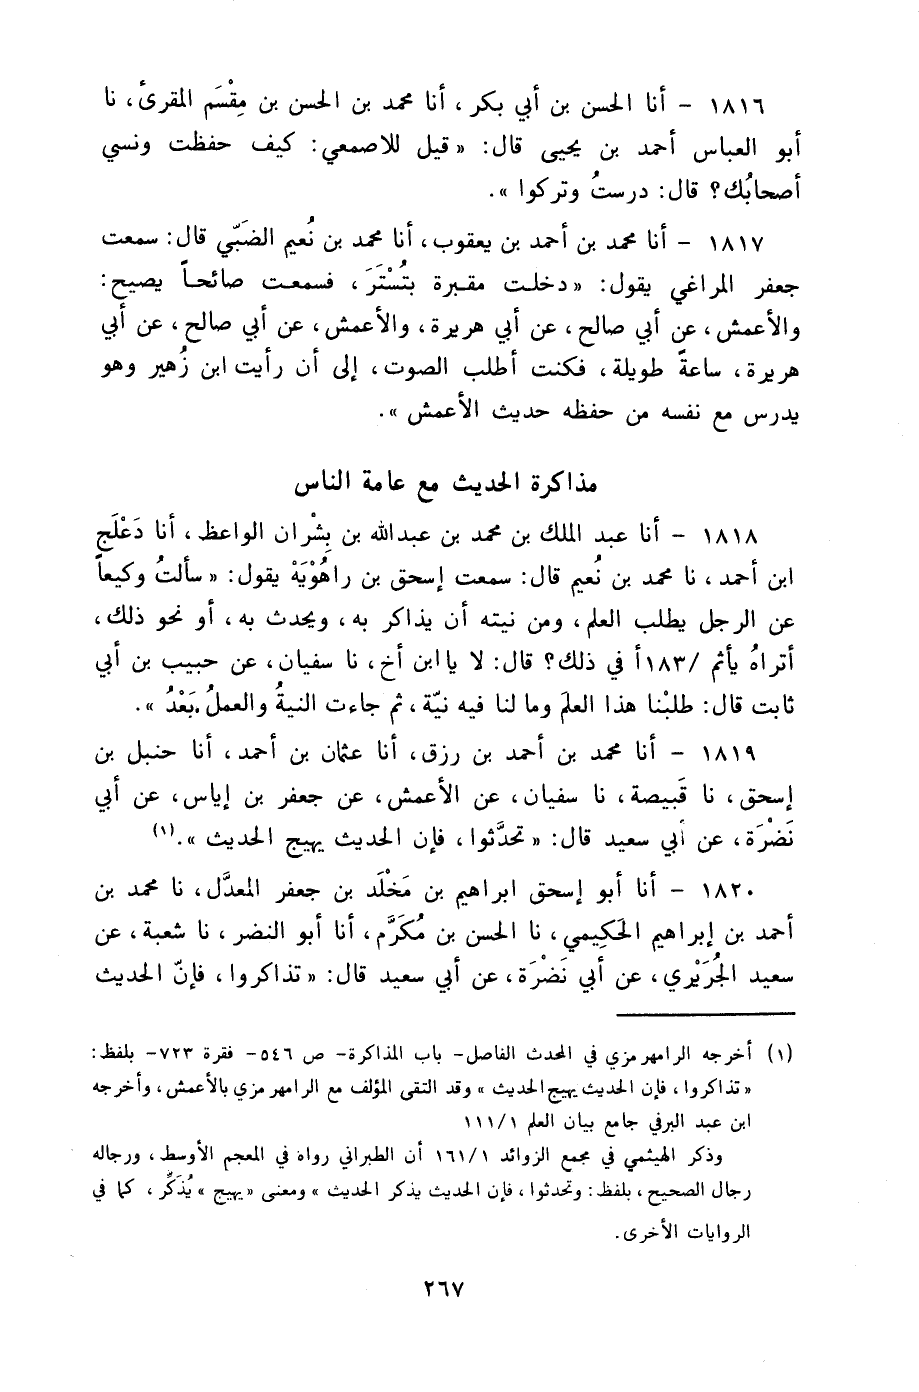 ١٨١٦ - أنا الحسن بن أبي بكر، أنا محمد بن الحسن بن مِقْسَم المقرئ، نا
أبو العباس أحمد بن يحيى قال: « قيل للاصمعي: كيف حفظت ونسي
أصحابُك؟ قال: درستُ وتركوا ».
١٨١٧ - أنا محمد بن أحمد بن يعقوب، أنا محمد بن نُعيم الضَبّي قال: سمعت
جعفر المراغي يقول: « دخلت مقبرة بتُسْتَرَ، فسمعت صائحاً يصيح:
والأعمش، عن أبي صالح، عن أبي هريرة، والأعمش، عن أبي صالح، عن أبي
هريرة، ساعةً طويلة، فكنت أطلب الصوت، إلى أن رأيت ابن زُهير وهو
يدرس مع نفسه من حفظه حديث الأعمش ».
مذاكرة الحديث مع عامة الناس
١٨١٨ - أنا عبد الملك بن محمد بن عبدالله بن بِشْران الواعظ، أنا دَعْلَج
ابن أحمد، نا محمد بن نُعيم قال: سمعت إسحق بن راهُوْيَهْ يقول: « سألتُ وكيعاً
عن الرجل يطلب العلم، ومن نيته أن يذاكر به، ويحدث به، أو نحو ذلك،
أتراهُ يأثم /١٨٣أ في ذلك؟ قال: لا يا ابن أخ، نا سفيان، عن حبيب بن أبي
ثابت قال: طلبْنا هذا العلمَ وما لنا فيه نيّة، ثم جاءت النيةُ والعملُ بَعْدُ ».
١٨١٩ - أنا محمد بن أحمد بن رزق، أنا عثمان بن أحمد، أنا حنبل بن
إسحق، نا قَبيصة، نا سفيان، عن الأعمش، عن جعفر بن إياس، عن أبي
نَضْرَة، عن أبي سعيد قال: « تحدَّثوا، فإن الحديث يهيج الحديث ».(١)
١٨٢٠ - أنا أبو إسحق ابراهيم بن مَخْلَد بن جعفر المعدَّل، نا محمد بن
أحمد بن إبراهيم الحَكِيمي، نا الحسن بن مُكَرَّم، أنا أبو النضر، نا شعبة، عن
سعيد الجُرَيْري، عن أبي نَضْرَة، عن أبي سعيد قال: « تذاكروا، فإنّ الحديث
(١) أخرجه الرامهرمزي في المحدث الفاصل- باب المذاكرة- ص ٥٤٦- فقرة ٧٢٣- بلفظ:
« تذاكروا، فإن الحديث يهيج الحديث » وقد التقى المؤلف مع الرامهرمزي بالأعمش، وأخرجه
ابن عبد البر في جامع بيان العلم ١/١١١
وذكر الهيثمي في مجمع الزوائد ١/١٦١ أن الطبراني رواه في المعجم الأوسط، ورجاله
رجال الصحيح، بلفظ: وتحدثوا، فإن الحديث يذكر الحديث » ومعنى « يهيج » يُذَكِّر، كما في
الروايات الأخرى.
٢٦٧